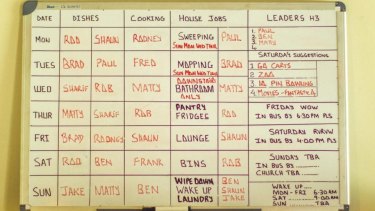 DATE DISHES COOKING HOUSE JOBS LEADERS H3
MON ROD SHAUN RODNEY SWEEPING PAUL
SUN MON WED THU
1. PAUL
2. BEN
3. MATTY
TUES BRAD PAUL FRED MOPPING BRAD
SUN MON WED THU
SATURDAY SUGGESTIONS
1 GO CARTS
2 ZOO
3 10 PIN BOWLING
4 MOVIES - FANTASTIC 4
WED SHARIF ROB MATTY DOWNSTAIRS
BATHROOM
ONLY
MATTY
THUR MATTY SHARIF ROB PANTRY
FRIDGES
ROD
FRIDAY WOW
IN BUS BY 6:30PM PLS
FRI BRAD RODNEY SHAUN LOUNGE SHAUN
SATURDAY RVRVW
IN BUS BY 4:00PM PLS
SAT ROD BEN FRANK BINS ROB
SUNDAY TBA
IN BUS BY
CHURCH TBA
SUN JAKE MATTY BEN WIPEDOWN
WAKE UP
LAUNDRY
BEN
SHAUN
JAKE
WAKE UP
MON - FRI 6:30AM
SAT 9:00AM
SUN TBA